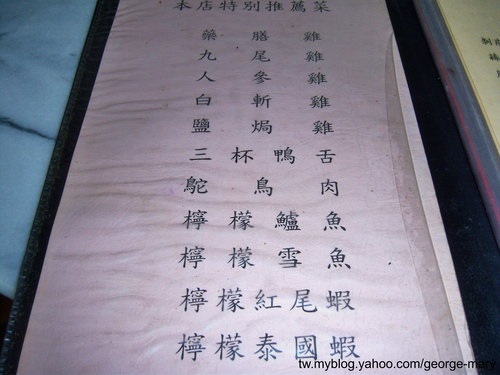 本店特別推薦菜
藥膳雞
九尾雞
人參雞
白斬雞
鹽焗雞
三杯鴨舌
鴕鳥肉
檸檬鱸魚
檸檬雪魚
檸檬紅尾蝦
檸檬泰國蝦
tw.myblog.yahoo.com/george-mary